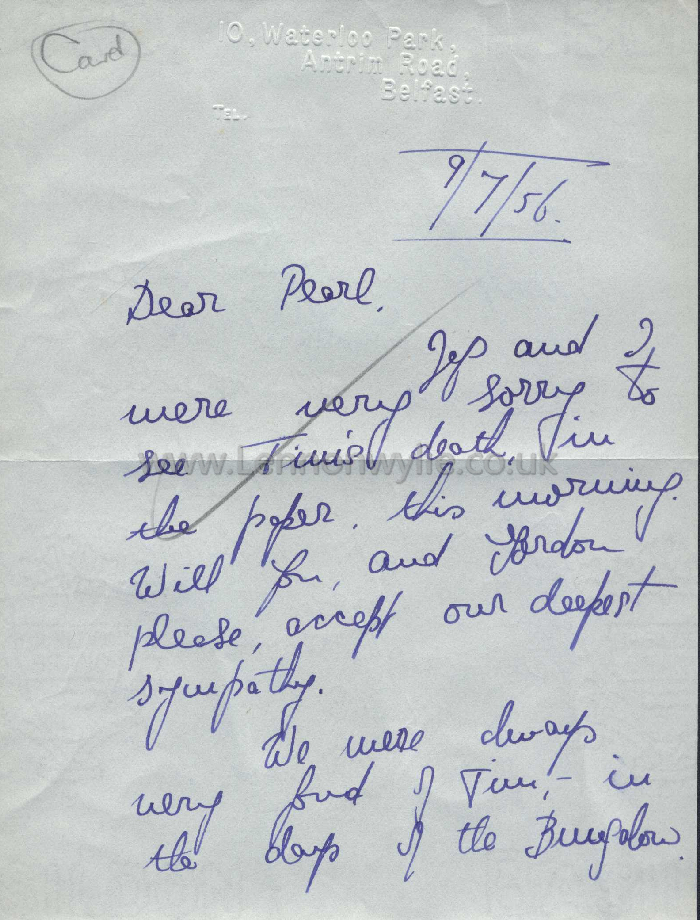 Card
10, Waterloo Park,
Antrim Road,
Belfast.
TEL.
9/7/56.
Dear Pearl,
and I
were very sorry to
see Tim's death, in
www.Lennonwylie.co.uk
the paper, this morning.
Will you, and Gordon
please, accept our deepest
sympathy.
We were always
very fond of Tim, - in
the days of the Bungalow.